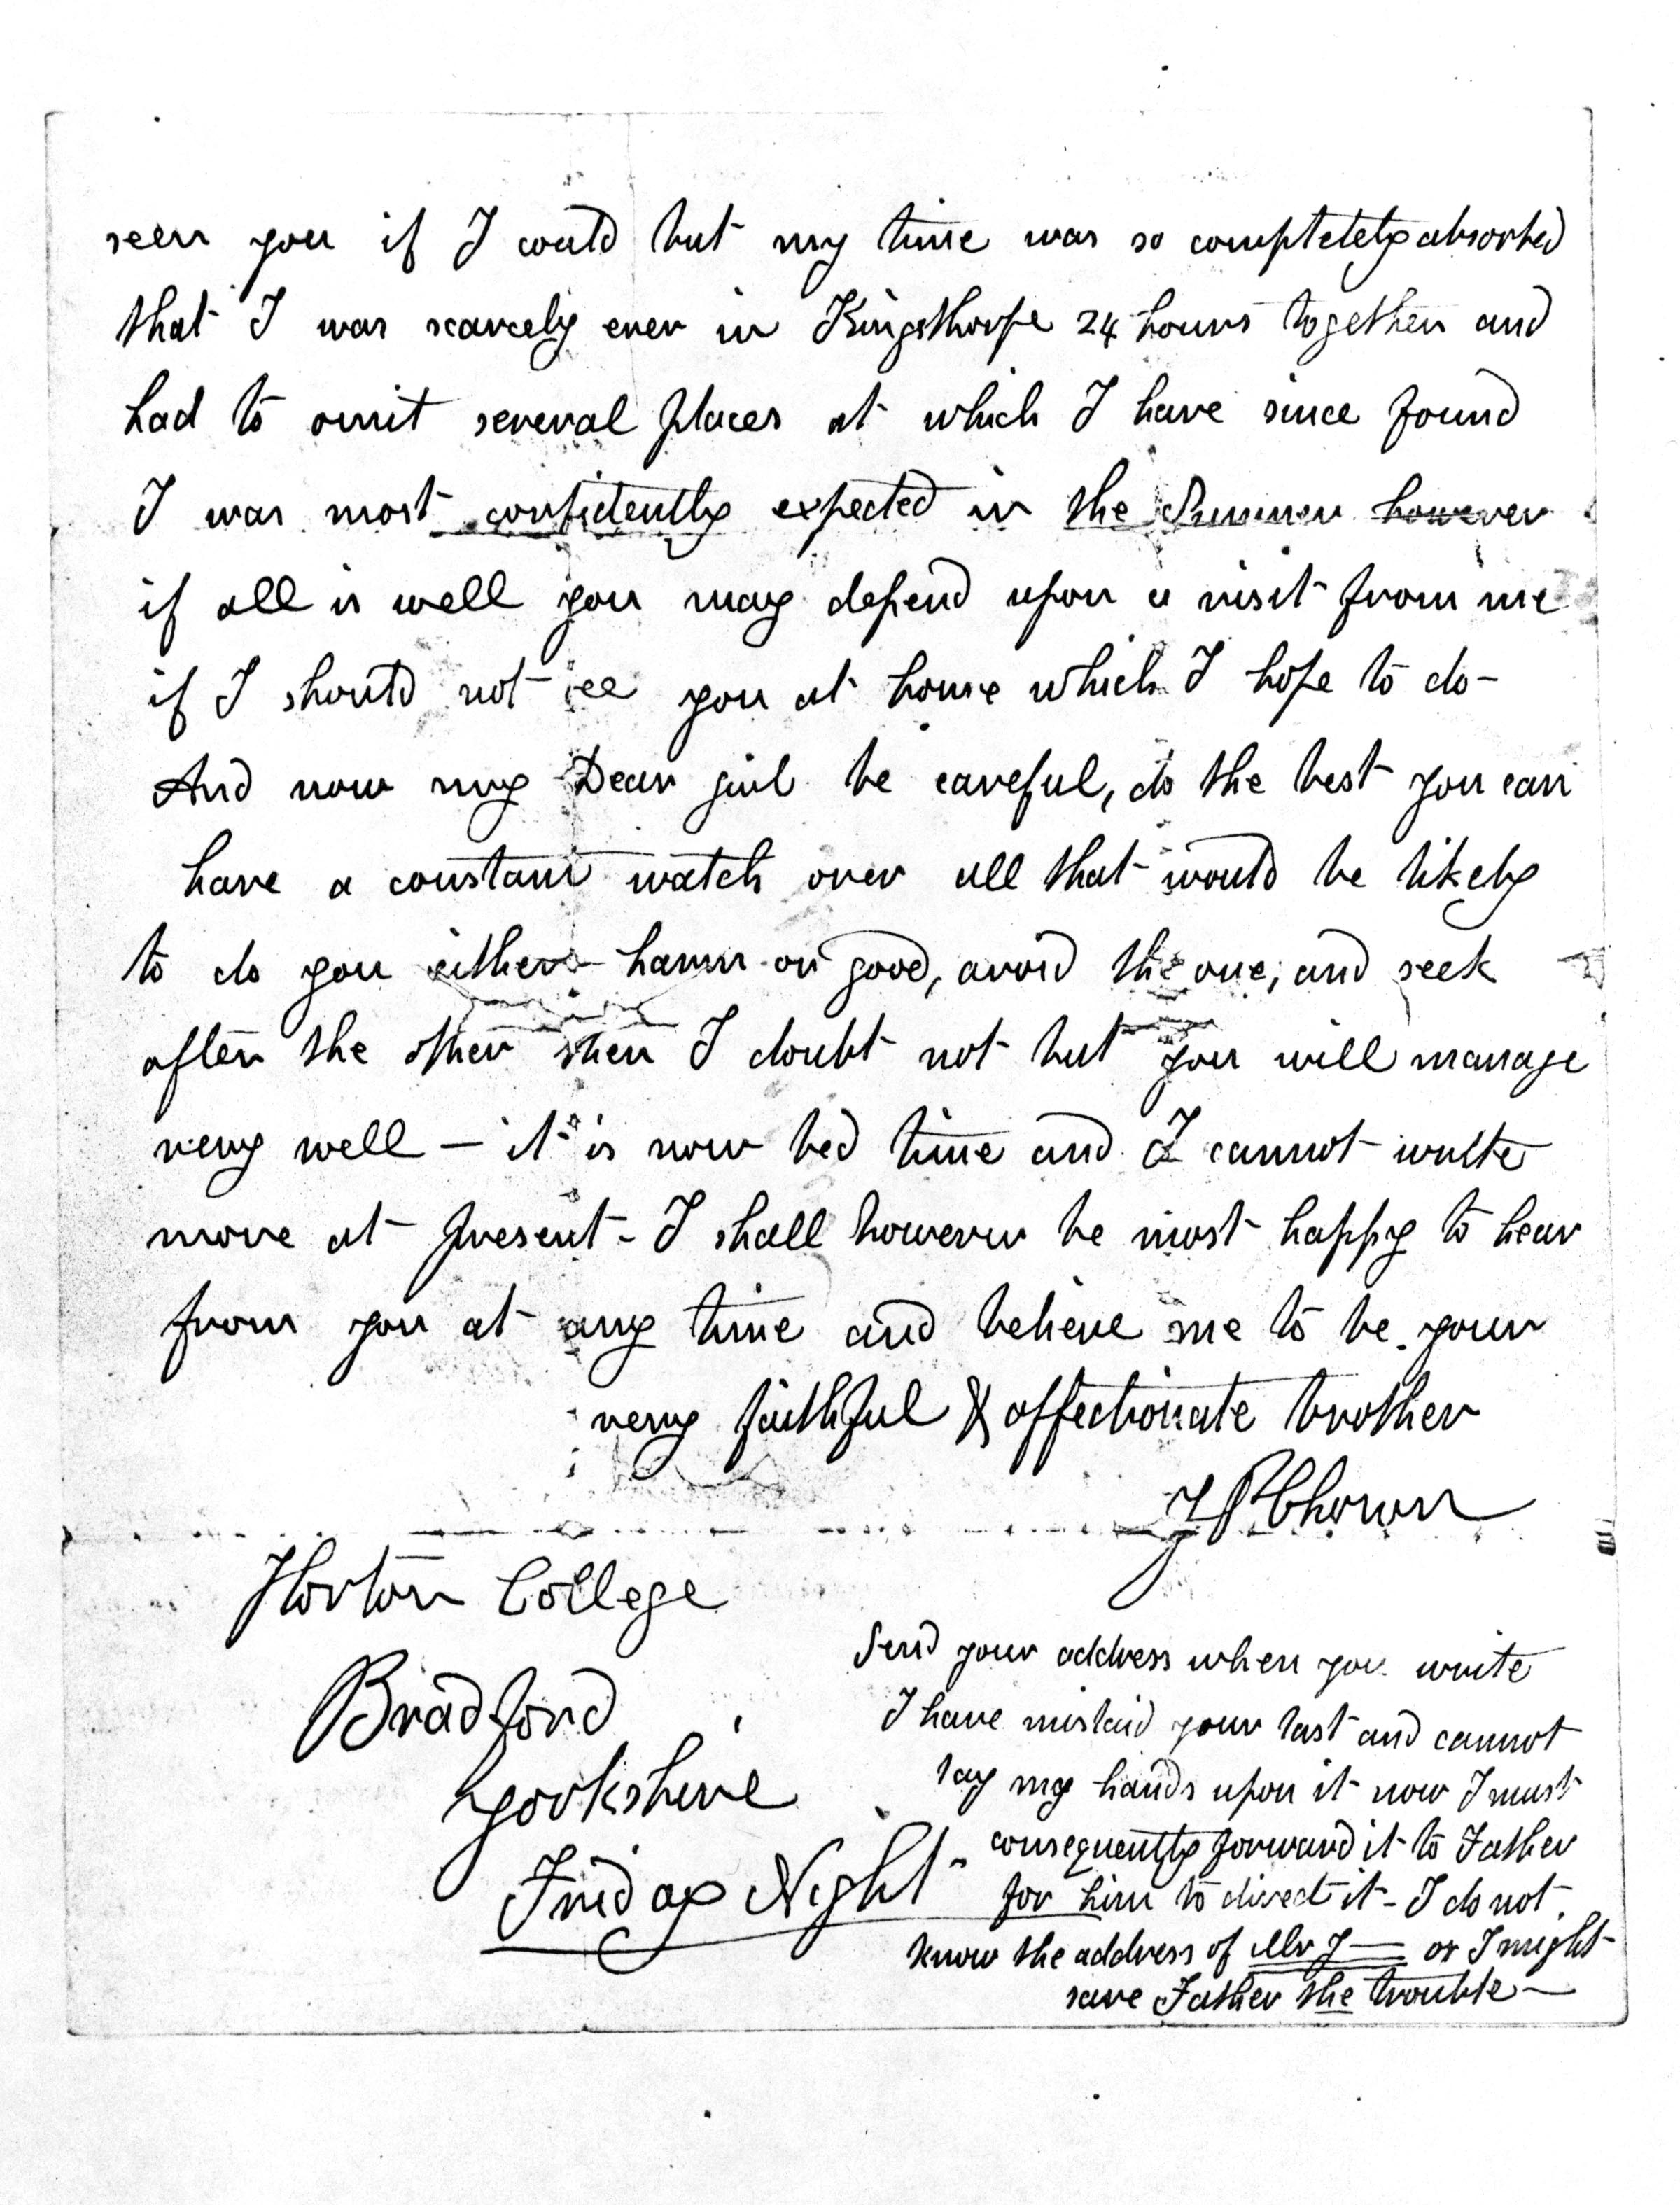 seen you if I could but my time was so completely absorbed
that I was scarcely ever in Kingsthorpe 24 hours together and
had to omit several places at which I have since found
I was most confidently expected in the Summer however
if all is well you may depend upon a visit from me
if I should not see you at home which I hope to do -
And now my Dear girl be careful, do the best you can
have a constant watch over all that would be likely
to do you either harm or good, avoid the one, and seek
after the other then I doubt not but you will manage
very well - it is now bed time and I cannot write
more at present - I shall however be most happy to hear
from you at any time and believe me to be your
very faithful & affectionate brother
J P Chown
Horton College
Bradford
Yorkshire
Friday Night
Send your address when you write
I have mislaid your last and cannot
lay my hands upon it now I must
consequently forward it to Father
for him to direct it - I do not
know the address of Mr J— or I might
save Father the trouble —